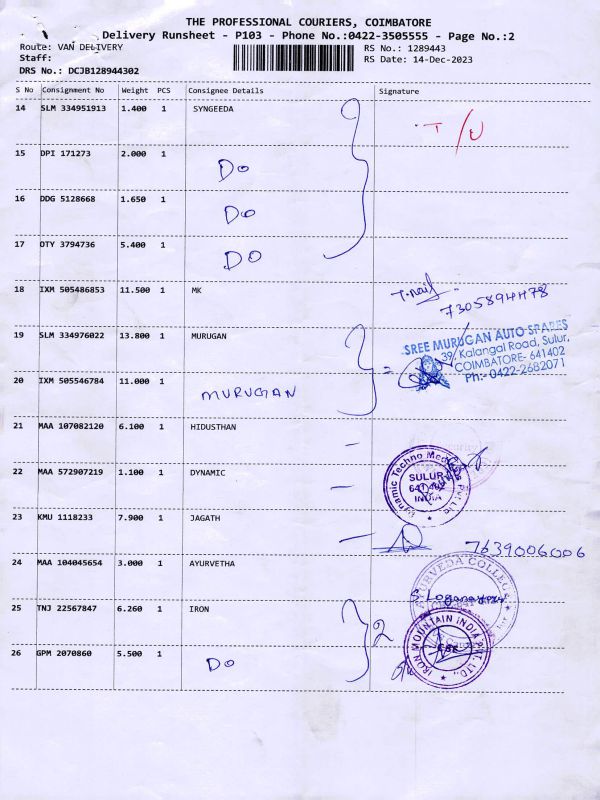 THE PROFESSIONAL COURIERS, COIMBATORE
Delivery Runsheet - P103 - Phone No.:0422-3505555 - Page No.:2
Route: VAN DELIVERY RS No.: 1289443
Staff: RS Date: 14-Dec-2023
DRS No.: DCJB128944302
S No Consignment No Weight PCS Consignee Details Signature
14 SLM 334951913 1.400 1 SYNGEEDA T/U
15 DPI 171273 2.000 1 DO
16 DDG 5128668 1.650 1 DO
17 OTY 3794736 5.400 1 DO
18 IXM 505486853 11.500 1 MK
7305894478
19 SLM 334976022 13.800 1 MURUGAN
SREE MURUGAN AUTO SPARES
39, Kalangal Road, Sulur.
COIMBATORE- 641402
Ph:- 0422-2682071
20 IXM 505546784 11.000 1 MURUGAN
21 MAA 107082120 6.100 1 HIDUSTHAN
22 MAA 572907219 1.100 1 DYNAMIC
Dynamic Techno Medicals Pvt Ltd.
SULUR
641 402
INDIA
23 KMU 1118233 7.900 1 JAGATH
7639006006
24 MAA 104045654 3.000 1 AYURVETHA
AYURVEDA COLLEGE
25 TNJ 22567847 6.260 1 IRON 2
IRON MOUNTAIN INDIA PVT. LTD.,
26 GPM 2070860 5.500 1 DO